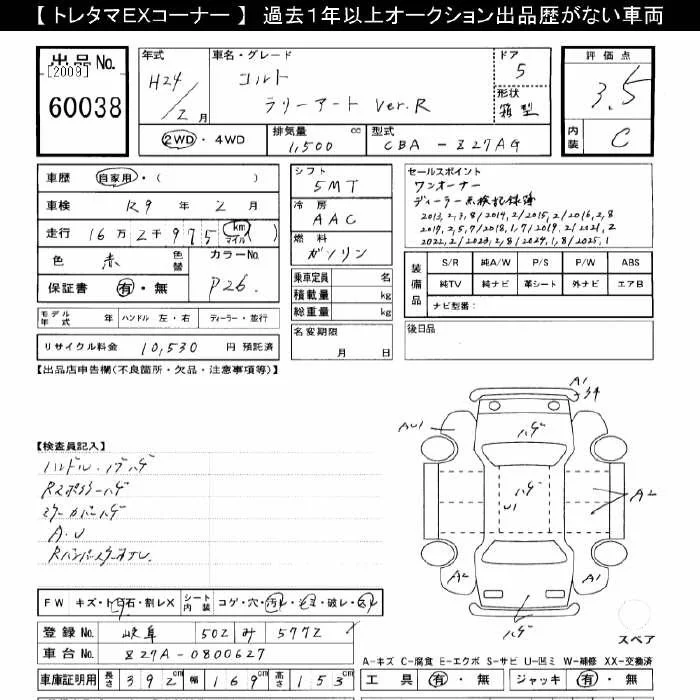 【 トレタマEXコーナー 】 過去1年以上オークション出品歴がない車両
出品No.
[2009]
60038
年式
H24/2月
車名・グレード
コルト
ラリーアート Ver.R
ドア
5
形状
箱型
評価点
3.5
内装
C
2WD・4WD
排気量 1,500 cc
型式 CBA-Z27AG
車歴 自家用・( )
車検 R9年2月
走行 16万2千975 (km マイル)
色 赤 色替
カラーNo. P26
保証書 有・無
シフト
5MT
冷房
AAC
燃料
ガソリン
乗車定員 名
積載量 kg
総重量 kg
セールスポイント
ワンオーナー
ディーラー点検記録簿
2013,2,3,8/2014,2/2015,2/2016,2,8
2022,2/2023,2,8/2024,1,8/2025,1
装備品
S/R 純A/W P/S P/W ABS
純TV 純ナビ 革シート 外ナビ エアB
ナビ型番:
モデル年式 年 ハンドル 左・右 ディーラー・並行
リサイクル料金 10,530 円 預託済
名変期限
月 日
後日品
【出品店申告欄(不良箇所・欠品・注意事項等)】
【検査員記入】
ハンドル・ノブハゲ
Rスポイラーハゲ
ミラーカバーハゲ
A.U
A1
AU1
ハゲ
ハゲ
U1
A2
A2
A1
ハゲ
スペア
FW キズ・トビ石・割レX
シート内装 コゲ・穴・汚レ・シミ・破レ・スレ
登録No. 岐阜 502 み 5772
車台No. Z27A-0800627
A-キズ C-腐食 E-エクボ S-サビ U-凹ミ W-補修 XX-交換済
車庫証明用 長さ 392cm 幅 169cm 高さ 153cm
工具 有・無 ジャッキ 有・無